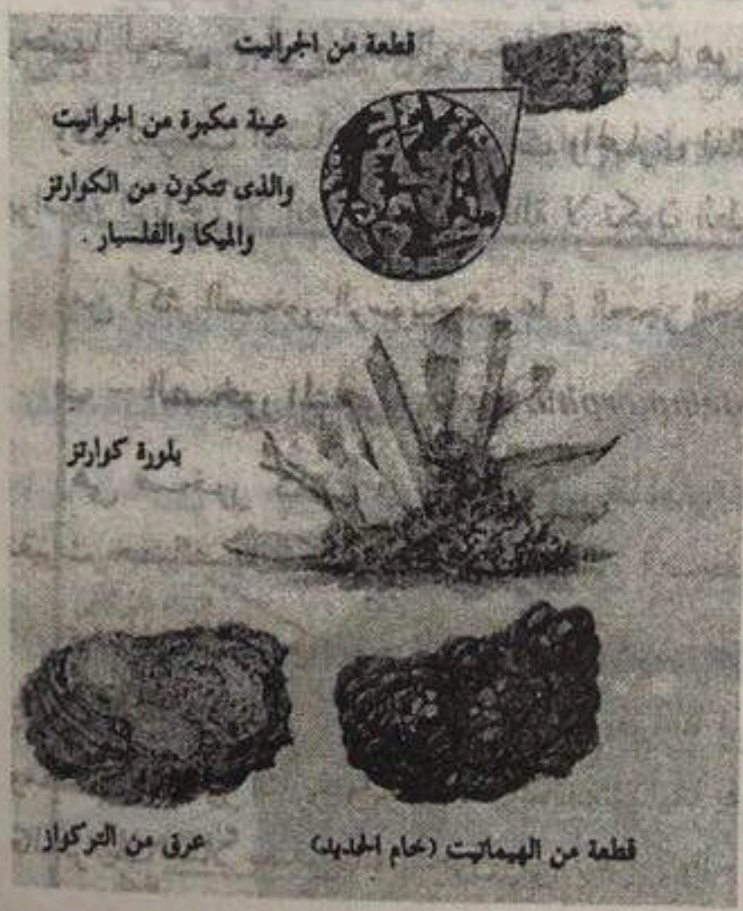 قطعة من الجرانيت
عينة مكبرة من الجرانيت
والذى تتكون من الكوارتز
والميكا والفلسبار .
بلورة كوارتز
عرق من التركواز
قطعة من الهيماتيت (خام الحديد)